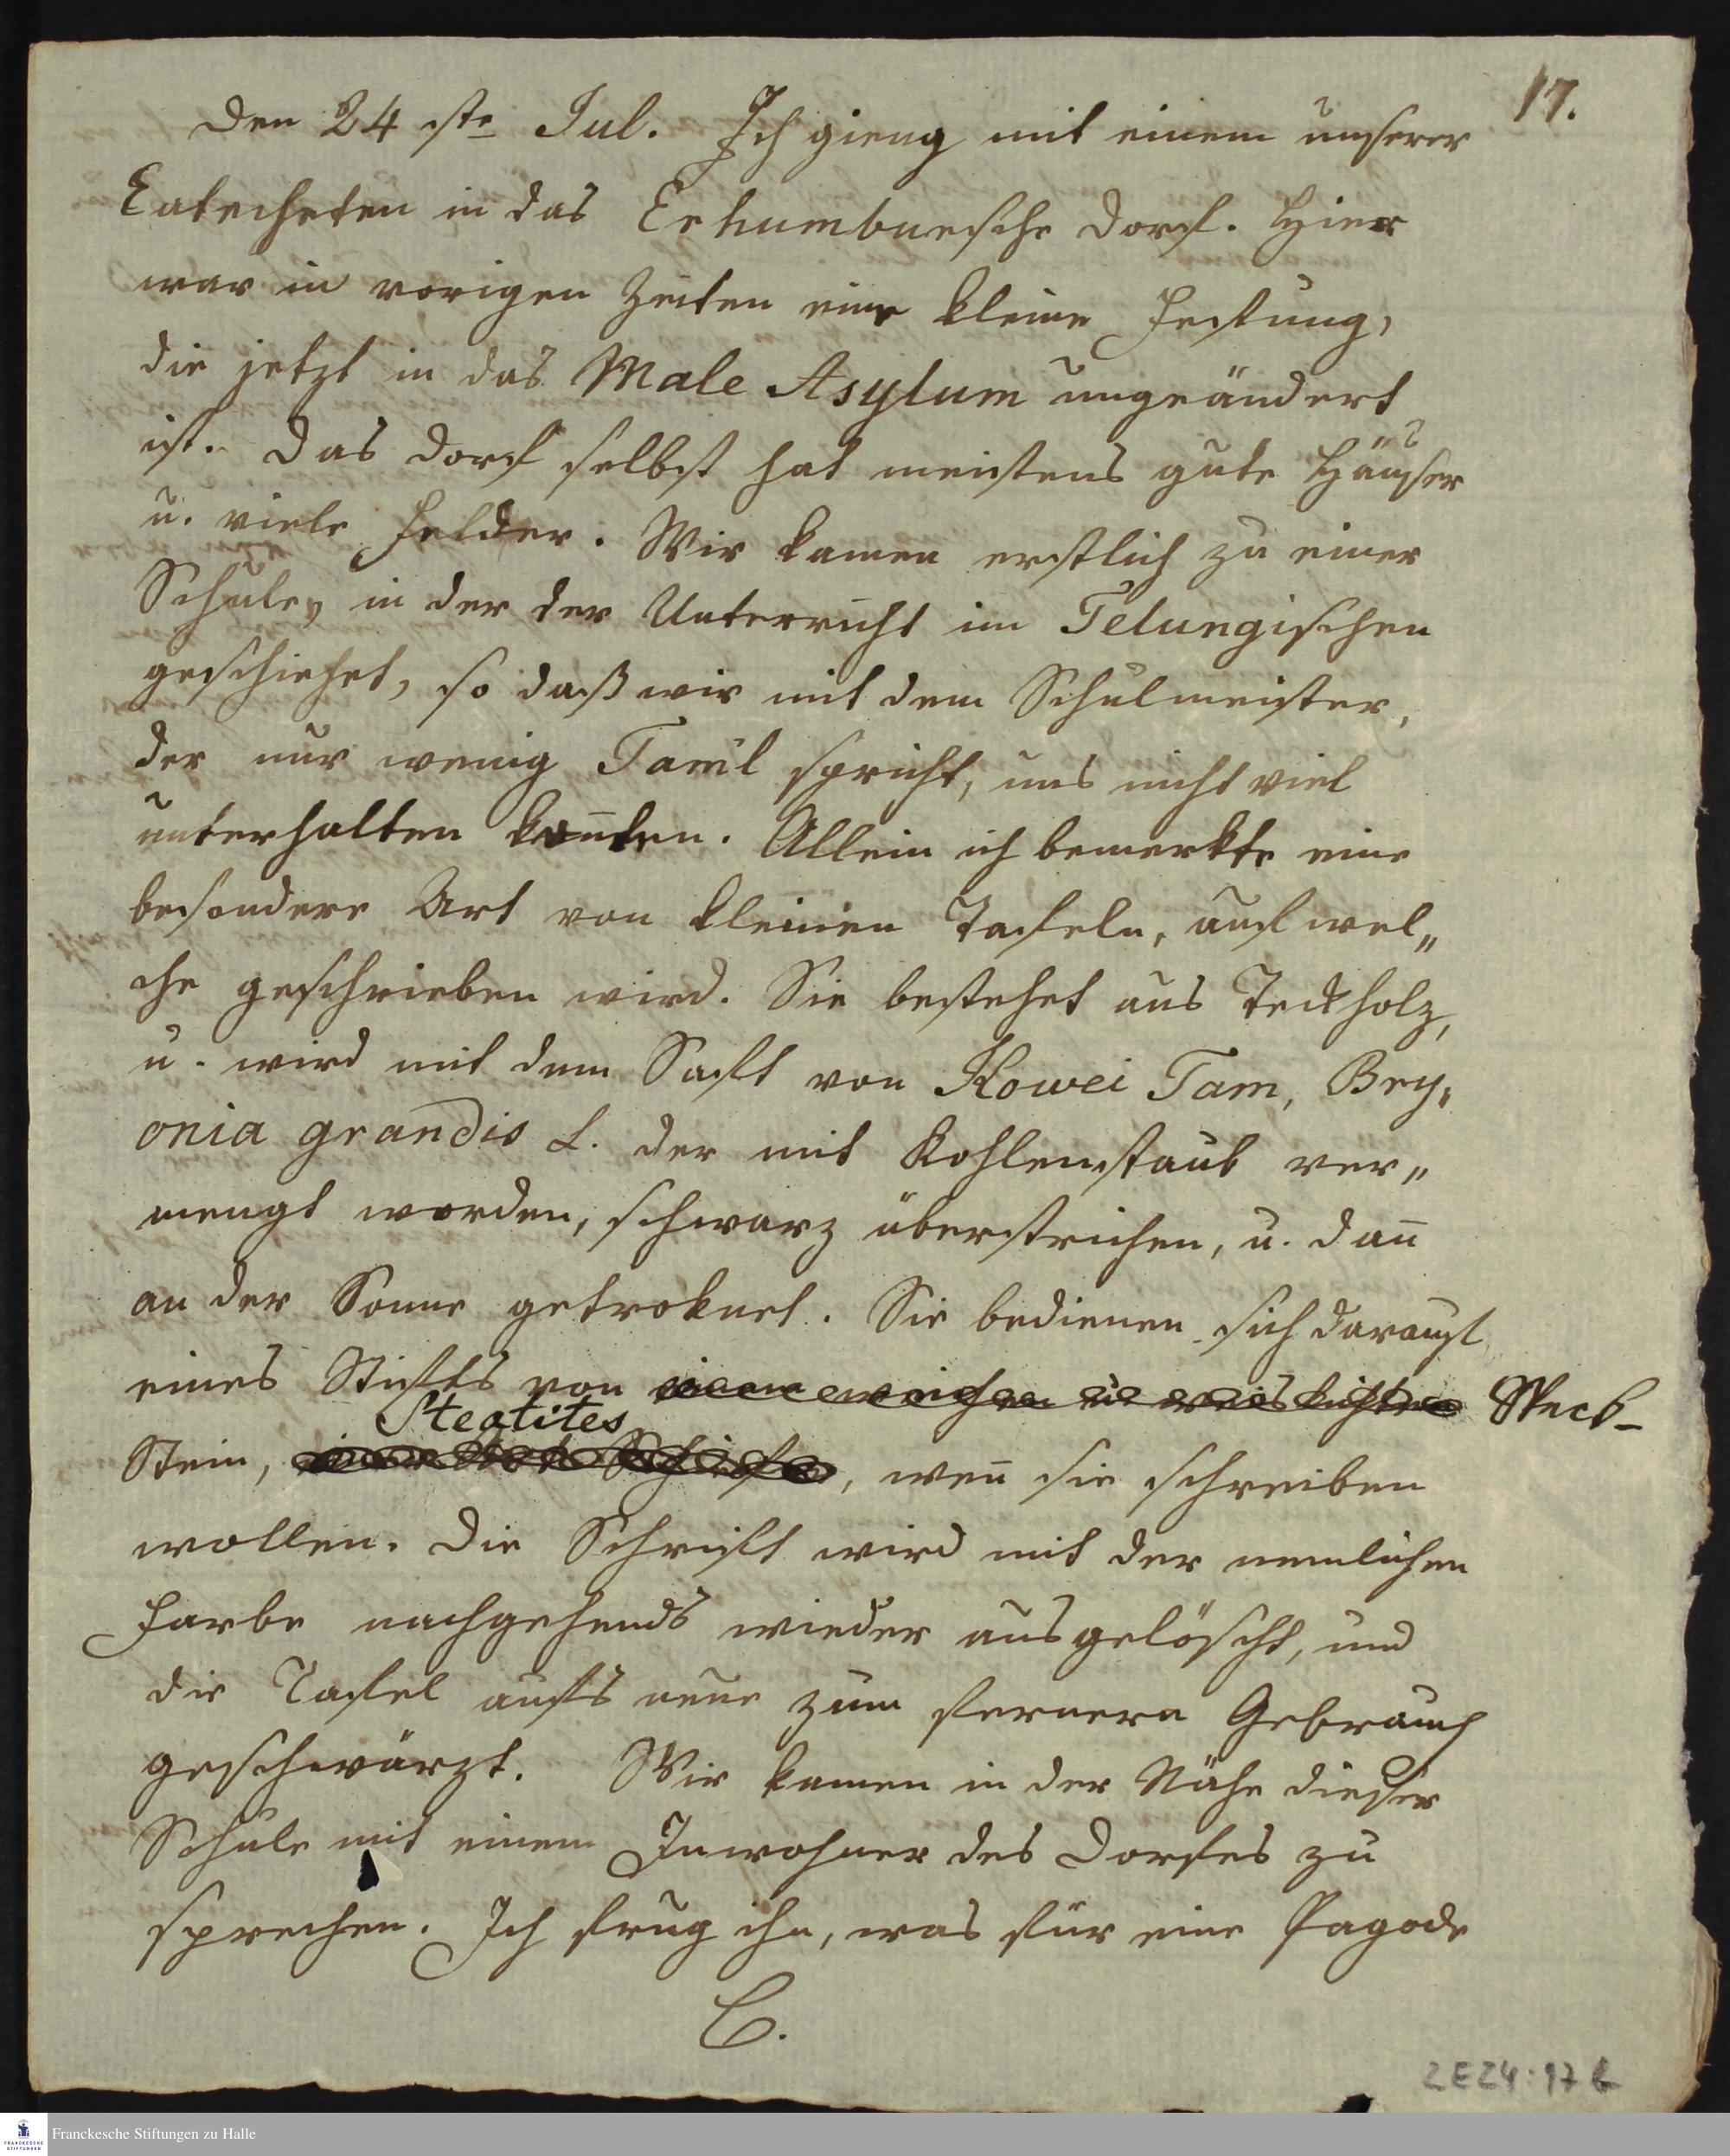 17.
Den 24 ste Jul. Ich gieng mit einem unserer
Catecheten in das Erhumbuesche Dorf. Hier
war in vorigen Zeiten eine kleine Festung,
die jetzt in das Male Asylum umgeändert
ist. Das Dorf selbst hat meistens gute Häuser
u. viele Felder. Wir kamen erstlich zu einer
Schule, in der der Unterricht im Telungischen
geschiehet, so daß wir mit dem Schulmeister,
der nur wenig Tamil spricht, uns nicht viel
unterhalten kon̄ten. Allein ich bemerkte eine
besondere Art von kleinen Tafeln, auf wel„
che geschrieben wird. Sie bestehet aus Teckholz,
u. wird mit dem Saft von Kowei Tam, Bry„
onia grandis L. der mit Kohlenstaub ver„
mengt worden, schwarz überstrichen, u. dan̄
an der Sonne getroknet. Sie bedienen sich darauf
eines Stifts von Speck-
Steatites
Stein, , wen̄ sie schreiben
wollen. Die Schrift wird mit der nemlichen
Farbe nachgehends wieder ausgelöscht, und
die Tafel aufs neue zum fernern Gebrauch
geschwärzt. Wir kamen in der Nähe dieser
Schule mit einem Inwohner des Dorfes zu
sprechen. Ich frug ihn, was für eine Pagode
C.
2E24:17b
Franckesche Stiftungen zu Halle